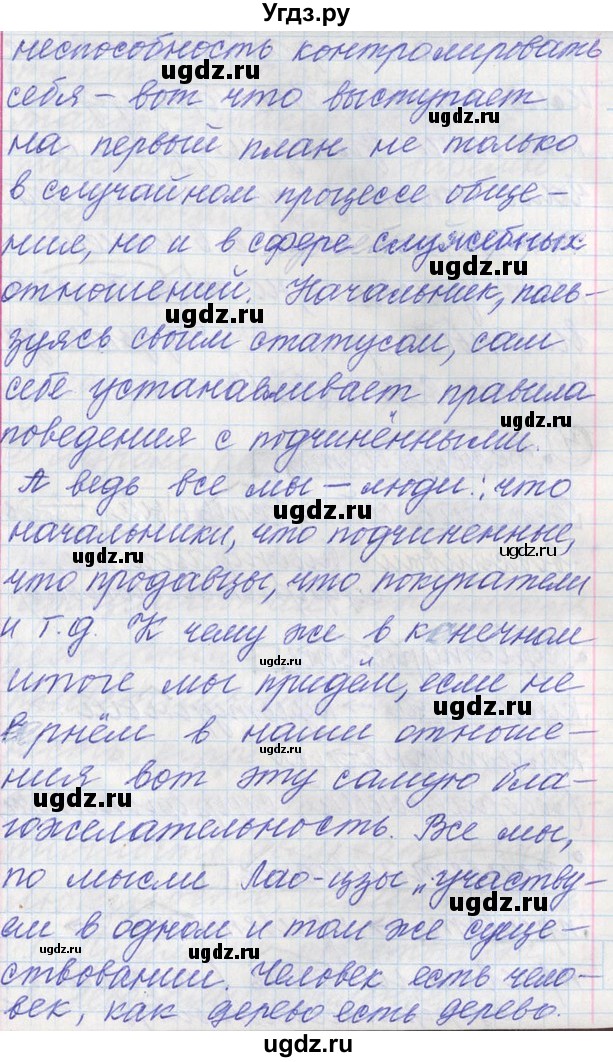 Угдз.ру
неспособность контролировать
ugdz.ru
себя – вот что выступает
ugdz.ru
на первый план не только
ugdz.ru
в случайном процессе обще-
ния, но и в сфере служебных
ugdz.ru
отношений. Начальник, поль-
ugdz.ru
зуясь своим статусом, сам
ugdz.ru
себе устанавливает правила
ugdz.ru
поведения с подчинёнными.
А ведь все мы – люди: что
ugdz.ru
начальники, что подчиненные,
ugdz.ru
ugdz.ru
что продавцы, что покупатели
и т.д. К чему же в конечном
ugdz.ru
итоге мы придём, если не
ugdz.ru
вернём в наши отноше-
ugdz.ru
ния вот эту самую бла-
ugdz.ru
гожелательность. Все мы,
ugdz.ru
по мысли Лао-цзы „участву-
ugdz.ru
ем в одном и том же суще-
ugdz.ru
ugdz.ru
ствовании. Человек есть чело-
век, как дерево есть дерево.
ugdz.ru
ugdz.ru